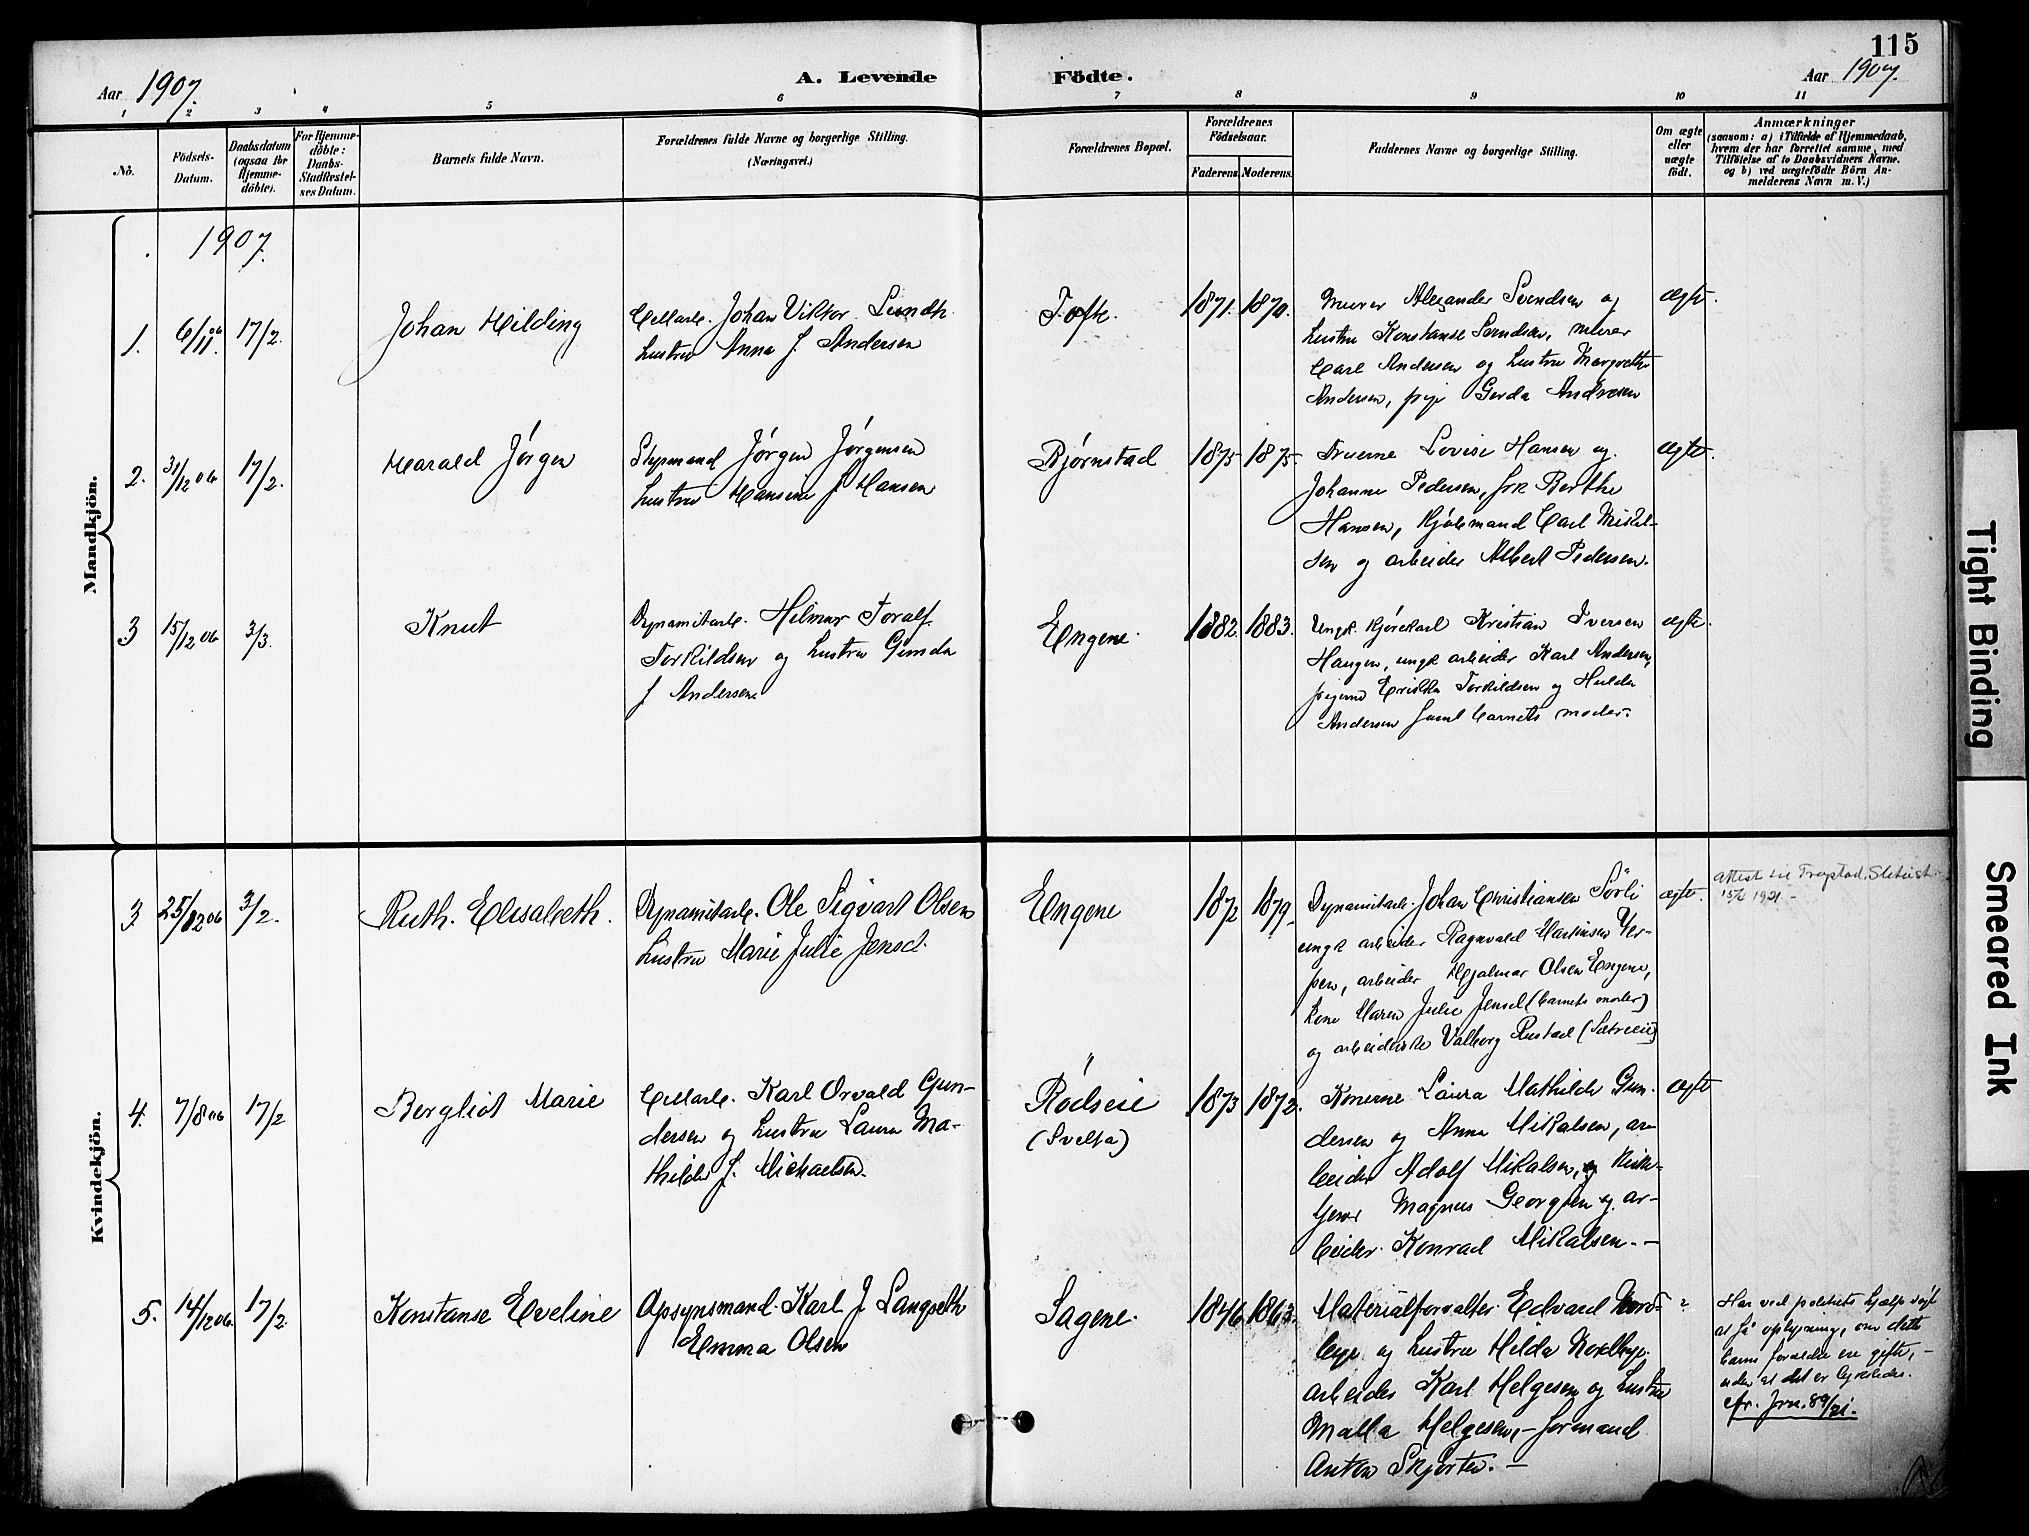 115
Aar 1907.
A. Levende Födte.
Aar 1907.
1 2 3 4 5 6 7 8 9 10 11
No.
Födsels-
Datum.
Daabsdatum
(ogsaa for
Hjemme-
döbte).
For Hjemme-
döbte:
Daabs-
Stadfæstel-
ses Datum.
Barnets fulde Navn.
Forældrenes fulde Navne og borgerlige Stilling.
(Næringsvei.)
Forældrenes Bopæl.
Forældrenes
Födselsaar.
Faderens Moderens.
Faddernes Navne og borgerlige Stilling.
Om ægte
eller
uægte
födt.
Anmærkninger
(saasom: a) i Tilfælde af Hjemmedaab,
hvem der har forrettet samme, med
Tilföielse af to Daabsvidners Navne.
og b) ved uægtefödte Börn An-
melderens Navn m. V.)
Mandkjön.
1907.
1. 6/11 06 17/2.
Johan Hilding
Cellarb. Johan Viktor Lundh
hustru Anna f. Andersen
Tofte.
1871. 1870.
Murer Alexander Svendsen og
hustru Konstanse Svendsen, murer
Carl Andersen og hustru Margrethe
Andersen, pige Gerda Andresen
ægte.
2. 31/12 06 17/2.
Harald Jörgen
Styrmand Jörgen Jörgensen
hustru Hansine f Hansen
Björnstad
1875 1875.
Fruerne Lovise Hansen og
Johanne Pedersen, frk Berthe
Hansen, Kjölsmand Carl Mikkel-
sen og arbeider Albert Pedersen.
ægte.
3 15/12 06 3/3.
Knut
Dynamitarb. Hilmar Toralf
Torkildsen og hustru Gunda
f Andersen
Engene.
1882. 1883.
Ungk. kjörekarl Kristian Iversen
Haugen, ungk arbeider Karl Andersen,
pigerne Erikka Torkildsen og Hulda
Andersen samt barnets moder.
ægte.
Kvindekjön.
3 25/12 06 3/2.
Ruth. Elisabeth.
Dynamitarb. Ole Sigvart Olsen
hustru Marie Julie Jensd.
Engene
1872 1879.
Dynamitarb. Johan Christiansen Sörli
ungk arbeider Ragnvald Martinsen Ver-
pen, arbeider Hjalmar Olsen Engene,
kone Maren Julie Jensd (barnets moder)
og arbeiderske Valborg Rustad (Sætreeie)
ægte.
Attest til Trøgstad
1921.
4. 7/8 06 17/2
Bergliot Marie
Cellarb. Karl Orvald Gun-
dersen og hustru Laura Ma-
thilde f. Michaelsen.
"
Rödseie
(Svelta)
1873 1872.
Konerne Laura Mathilde Gun-
dersen og Anna Mikalsen, ar-
beider Adolf Mikalsen,
Magnus Georgsen og ar-
beider Konrad Mikalsen. -
ægte
5. 14/12 06. 17/2.
Konstanse Eveline
Opsynsmand. Karl J Langseth
Emma Olsen
Sagene.
1846 1863.
Materialforvalter Edvard Nord-
bye og hustru Hilda Nordbye.
arbeider Karl Helgesen og hustru
Malla Helgesen, - formand
Anton Skjorten. -
?
Har ved politiets hjælp søgt
at få oplysning, om dette
barns forældre ere gifte, -
uden at det er lykkedes.
cfr. Jrn. 89/21.
Tight Binding
Smeared Ink